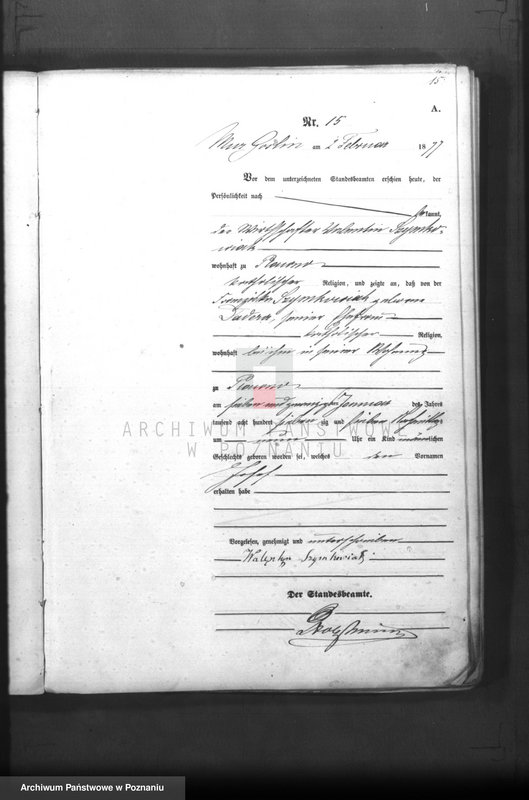 15
A.
Nr. 15
Mur Goslin am 2 Februar 1877
Vor dem unterzeichneten Standesbeamten erschien heute, der
Persönlichkeit nach
bekannt,
der Wirthschafter Valentin Szymko-
wiak
wohnhaft zu
katholischer Religion, und zeigte an, daß von der
Franziska Szymkowiak geborene
seiner Ehefrau
katholischer Religion,
wohnhaft bei ihm in seiner Wohnung
zu
am sieben und zwanzigsten Januar des Jahres
tausend acht hundert siebenzig und sieben Nachmittags
um Uhr ein Kind männlichen
Geschlechts geboren worden sei, welches den Vornamen
Josef
erhalten habe
Vorgelesen, genehmigt und unterschrieben
Walenty Szymkowiak
Der Standesbeamte.
ARCHIWUM PAŃSTWOWE
W POZNANIU
Archiwum Państwowe w Poznaniu